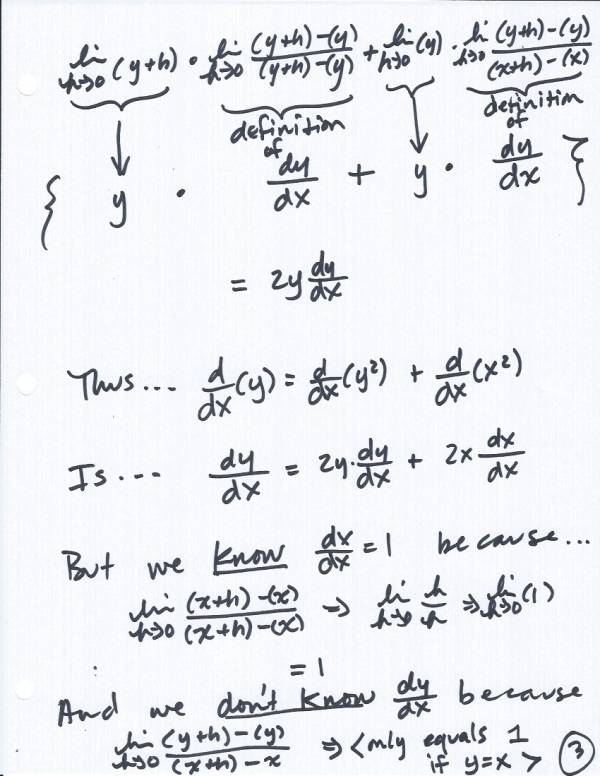 lim h→0 (y+h) • lim h→0 (y+h)-(y) / (y+h)-(y) + lim h→0 (y) • lim h→0 (y+h)-(y) / (x+h)-(x)
definition of definition of
{ y • dy/dx + y • dy/dx }
= 2y dy/dx
Thus... d/dx (y) = d/dx (y²) + d/dx (x²)
Is... dy/dx = 2y • dy/dx + 2x dx/dx
But we know dx/dx = 1 because...
lim h→0 (x+h)-(x) / (x+h)-(x) ⇒ lim h→0 h/h ⇒ lim h→0 (1)
= 1
And we don't know dy/dx because
lim h→0 (y+h)-(y) / (x+h)-x ⇒ <only equals 1
if y=x> 3